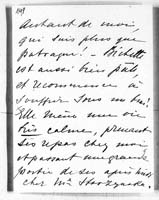 autant de moi,
qui suis plus que
patraque! – Michette
est aussi très pâle
et recommence à
souffrir sous un bras!
Elle mène une vie
très calme, prenant
ses repas chez moi
et passant une grande
partie de ses après midi
chez Mme